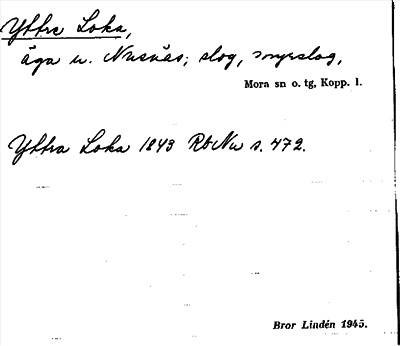 Yttre Loka,
äga u. Nusnäs; slog, myrslog,
Mora sn o. tg, Kopp. l.
Yttra Loka 1843 RbNu s. 472.
Bror Lindén 1945.